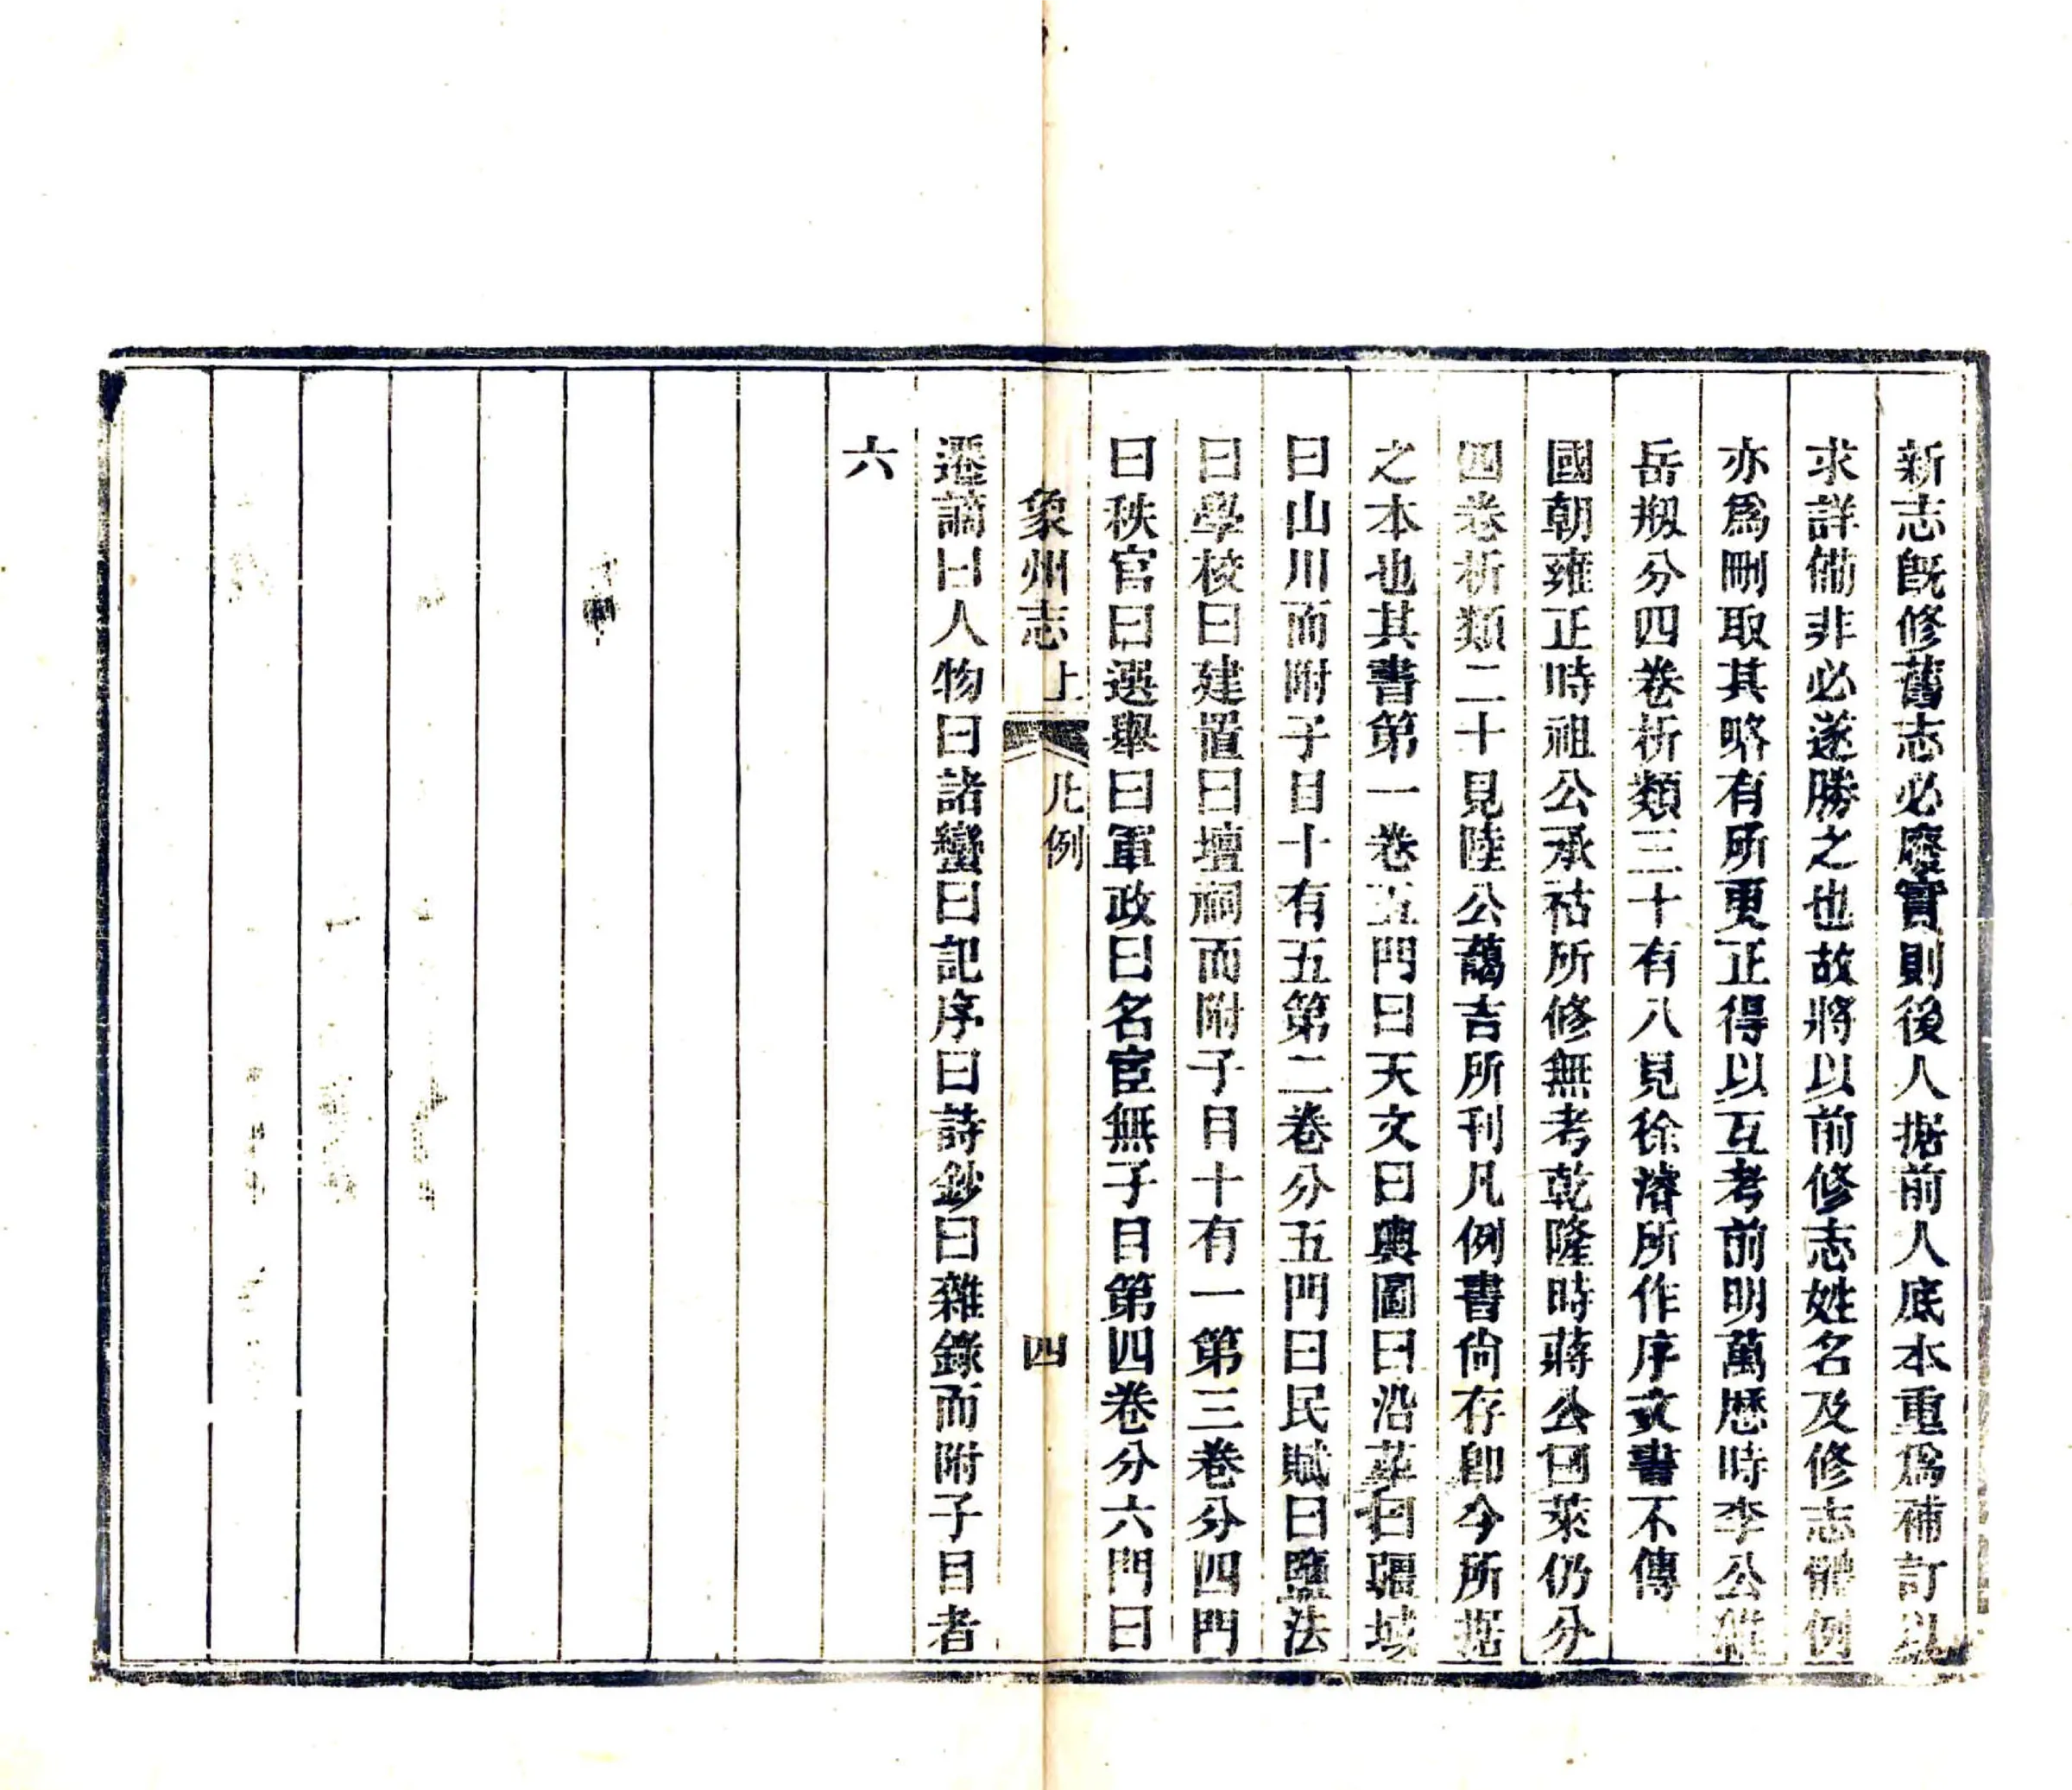 新志旣修舊志必廢實則後人据前人底本重爲補訂以
求詳備非必遂勝之也故將以前修志姓名及修志體例
亦爲刪取其略有所更正得以互考前明萬歷時李公維
岳剏分四卷析類三十有八見徐濬所作序文書不傳
國朝雍正時祖公承祜所修無考乾隆時蔣公曰萊仍分
四卷析類二十見陸公藹吉所刊凡例書尙存卽今所据
之本也其書第一卷五門曰天文曰輿圖曰沿革曰疆域
曰山川而附子目十有五第二卷分五門曰民賦曰鹽法
曰學校曰建置曰壇祠而附子目十有一第三卷分四門
曰秩官曰選舉曰軍政曰名宦無子目第四卷分六門曰
象州志 上 凡例 四
遷謫曰人物曰諸蠻曰記序曰詩鈔曰雜錄而附子目者
六